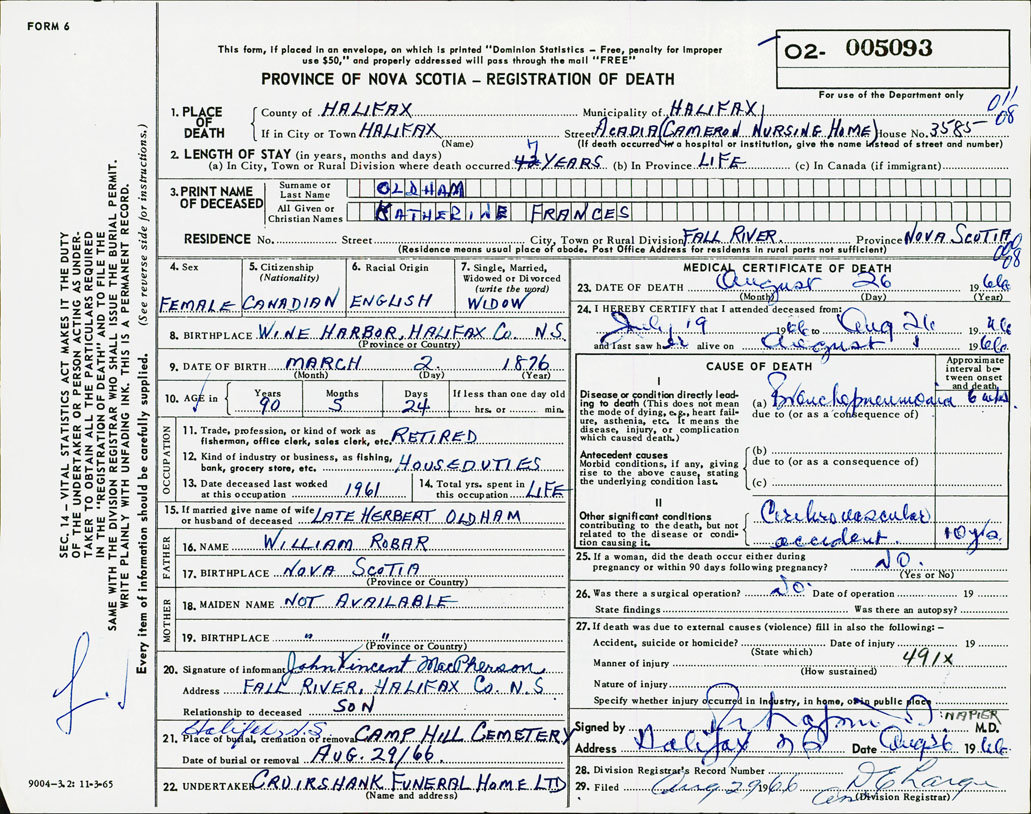 FORM 6
This form, if placed in an envelope, on which is printed "Dominion Statistics – Free, penalty for improper
use $50," and properly addressed will pass through the mail "FREE"
PROVINCE OF NOVA SCOTIA – REGISTRATION OF DEATH
02- 005093
For use of the Department only
011
08
1. PLACE OF DEATH
County of HALIFAX Municipality of HALIFAX
If in City or Town HALIFAX Street ACADIA (CAMERON NURSING HOME) House No. 3585-
(Name) (If death occurred in a hospital or institution, give the name instead of street and number)
2. LENGTH OF STAY (in years, months and days)
(a) In City, Town or Rural Division where death occurred 7 YEARS (b) In Province LIFE (c) In Canada (if immigrant)
3. PRINT NAME OF DECEASED
Surname or Last Name OLDHAM
All Given or Christian Names KATHERINE FRANCES
RESIDENCE No. Street City, Town or Rural Division FALL RIVER Province NOVA SCOTIA
(Residence means usual place of abode. Post Office Address for residents in rural parts not sufficient)
008
4. Sex FEMALE
5. Citizenship (Nationality) CANADIAN
6. Racial Origin ENGLISH
7. Single, Married, Widowed or Divorced (write the word) WIDOW
8. BIRTHPLACE WINE HARBOR, HALIFAX Co. N.S.
(Province or Country)
9. DATE OF BIRTH MARCH 2. 1876
(Month) (Day) (Year)
10. AGE in Years 90 Months 5 Days 24 If less than one day old hrs. or min.
OCCUPATION
11. Trade, profession, or kind of work as fisherman, office clerk, sales clerk, etc. RETIRED
12. Kind of industry or business, as fishing, bank, grocery store, etc. HOUSEDUTIES
13. Date deceased last worked at this occupation 1961
14. Total yrs. spent in this occupation LIFE
15. If married give name of wife or husband of deceased LATE HERBERT OLDHAM
FATHER
16. NAME WILLIAM ROBAR
17. BIRTHPLACE NOVA SCOTIA
(Province or Country)
MOTHER
18. MAIDEN NAME NOT AVAILABLE
19. BIRTHPLACE " "
(Province or Country)
20. Signature of informant John Vincent MacPherson
Address FALL RIVER, HALIFAX Co. N.S.
Relationship to deceased SON
Halifax N.S.
21. Place of burial, cremation or removal CAMP HILL CEMETERY
Date of burial or removal AUG. 29/66
22. UNDERTAKER CRUIKSHANK FUNERAL HOME LTD
(Name and address)
MEDICAL CERTIFICATE OF DEATH
23. DATE OF DEATH August 26 1966
(Month) (Day) (Year)
24. I HEREBY CERTIFY that I attended deceased from:
July 19 1966 to Aug 26 1966
and last saw her alive on August 1966
CAUSE OF DEATH
Approximate interval between onset and death
I
Disease or condition directly leading to death (This does not mean the mode of dying, e.g., heart failure, asthenia, etc. It means the disease, injury, or complication which caused death.)
(a) Bronchopneumonia 6 wks
due to (or as a consequence of)
Antecedent causes
Morbid conditions, if any, giving rise to the above cause, stating the underlying condition last.
(b)
due to (or as a consequence of)
(c)
II
Other significant conditions contributing to the death, but not related to the disease or condition causing it.
Cerebrovascular
accident. 10 yrs
25. If a woman, did the death occur either during pregnancy or within 90 days following pregnancy? NO.
(Yes or No)
26. Was there a surgical operation? NO. Date of operation 19
State findings Was there an autopsy?
27. If death was due to external causes (violence) fill in also the following: –
Accident, suicide or homicide? Date of injury 19
(State which)
491X
Manner of injury
(How sustained)
Nature of injury
Specify whether injury occurred in Industry, in home, or in public place
Signed by NAPIER M.D.
Address Halifax NS Date Aug 26 1966
28. Division Registrar's Record Number
29. Filed Aug 29 1966
(Division Registrar)
SEC. 14 – VITAL STATISTICS ACT MAKES IT THE DUTY
OF THE UNDERTAKER OR PERSON ACTING AS UNDER-
TAKER TO OBTAIN ALL THE PARTICULARS REQUIRED
IN THE "REGISTRATION OF DEATH" AND TO FILE THE
SAME WITH THE DIVISION REGISTRAR WHO SHALL ISSUE THE BURIAL PERMIT.
WRITE PLAINLY WITH UNFADING INK. THIS IS A PERMANENT RECORD.
Every item of information should be carefully supplied. (See reverse side for instructions.)
9004-3.2: 11-3-65